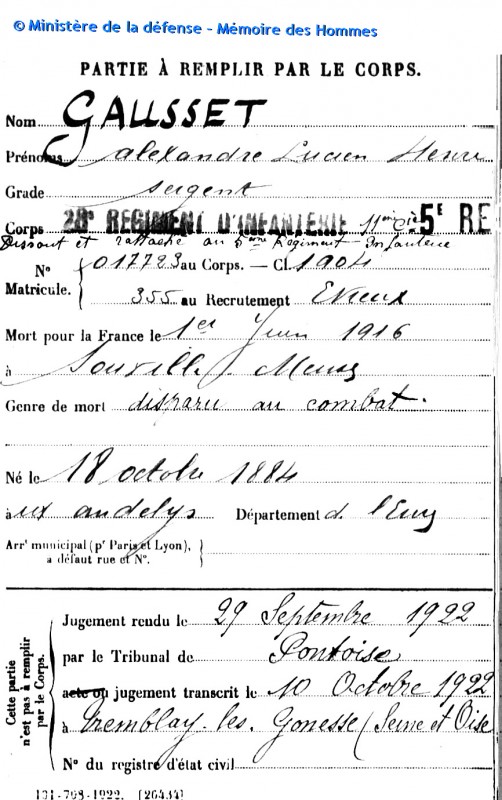 © Ministère de la défense - Mémoire des Hommes
PARTIE À REMPLIR PAR LE CORPS.
Nom GAUSSET
Prénoms alexandre Lucien Henri
Grade sergent
Corps 28e REGIMENT D'INFANTERIE 11eme Cie 5E RE
Dissout et rattaché au 5eme Régiment Infanterie
N° Matricule. { 017723 au Corps. — Cl. 1904
355 au Recrutement Evreux
Mort pour la France le 1er Juin 1916
à Souville Meuse
Genre de mort disparu au combat.
Né le 18 octobre 1884
à ux andelys Département d. l'Eure
Arrt municipal (pr Paris et Lyon), à défaut rue et N°. }
Cette partie n'est pas à remplir par le Corps.
Jugement rendu le 29 Septembre 1922
par le Tribunal de Pontoise
acte ou jugement transcrit le 10 Octobre 1922
à Tremblay-les-Gonesse (Seine et Oise
N° du registre d'état civil
131-708-1922. [26434]